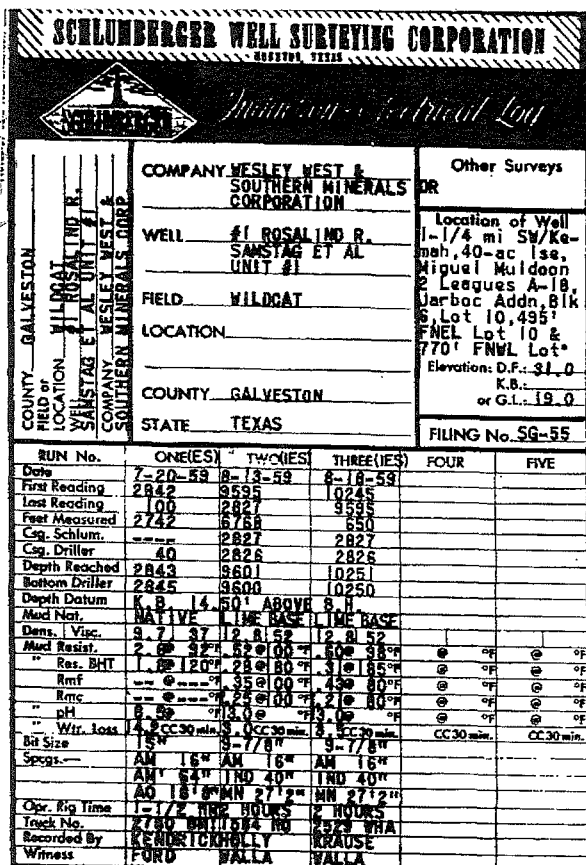 SCHLUMBERGER WELL SURVEYING CORPORATION
HOUSTON, TEXAS
SCHLUMBERGER
Log
COUNTY GALVESTON
FIELD or
LOCATION WILDCAT
WELL #1 ROSALIND R.
SAMSTAG ET AL UNIT #1
COMPANY WESLEY WEST &
SOUTHERN MINERALS CORP
COMPANY WESLEY WEST &
SOUTHERN MINERALS
CORPORATION
WELL #1 ROSALIND R.
SAMSTAG ET AL
UNIT #1
FIELD WILDCAT
LOCATION
COUNTY GALVESTON
STATE TEXAS
Other Surveys
DR
Location of Well
1-1/4 mi SW/Ke-
mah, 40-ac lse,
Miguel Muldoon
2 Leagues A-18,
Jarboc Addn, Blk
6, Lot 10, 495'
FNEL Lot 10 &
770' FNWL Lot*
Elevation: D.F.: 31.0
K.B.:
or G.L.: 19.0
FILING No. SG-55
RUN No. ONE(ES) TWO(IES) THREE(IES) FOUR FIVE
Date 7-20-59 8-13-59 8-18-59
First Reading 2842 9595 10245
Last Reading 100 2827 9595
Feet Measured 2742 6768 650
Csg. Schlum. ---- 2827 2827
Csg. Driller 40 2826 2826
Depth Reached 2843 9601 10251
Bottom Driller 2845 9600 10250
Depth Datum K.B. 14.50' ABOVE B.H.
Mud Nat. NATIVE LIME BASE LIME BASE
Dens. Visc. 9.7 37 12.8 52 12.8 52
Mud Resist. 2.6 @ 92 °F .52 @ 100 °F .50 @ 98 °F @ °F @ °F
" Res. BHT @ 120 °F .28 @ °F .31 @ 185 °F @ °F @ °F
Rmf -- @ -- °F .35 @ 100 °F .43 @ 80 °F @ °F @ °F
Rmc -- @ -- °F .25 @ 100 °F .21 @ 80 °F @ °F @ °F
" pH 8.5 @ @ @ °F @ °F @ °F
" Wtr. Loss CC 30 min. 3.0 CC 30 min. CC 30 min. CC 30 min. CC 30 min.
Bit Size 15" 9-7/8" 9-7/8"
Spcgs.— AM 16" AM 16" AM 16"
AM' 64" IND 40" IND 40"
AO 18'8" MN 27'2" MN 27'2"
Opr. Rig Time 1-1/2 HRS 2 HOURS 2 HOURS
Truck No. 2529 WHA
Recorded By KENDRICK HOLLY KRAUSE
Witness FORD WALLA WALLA